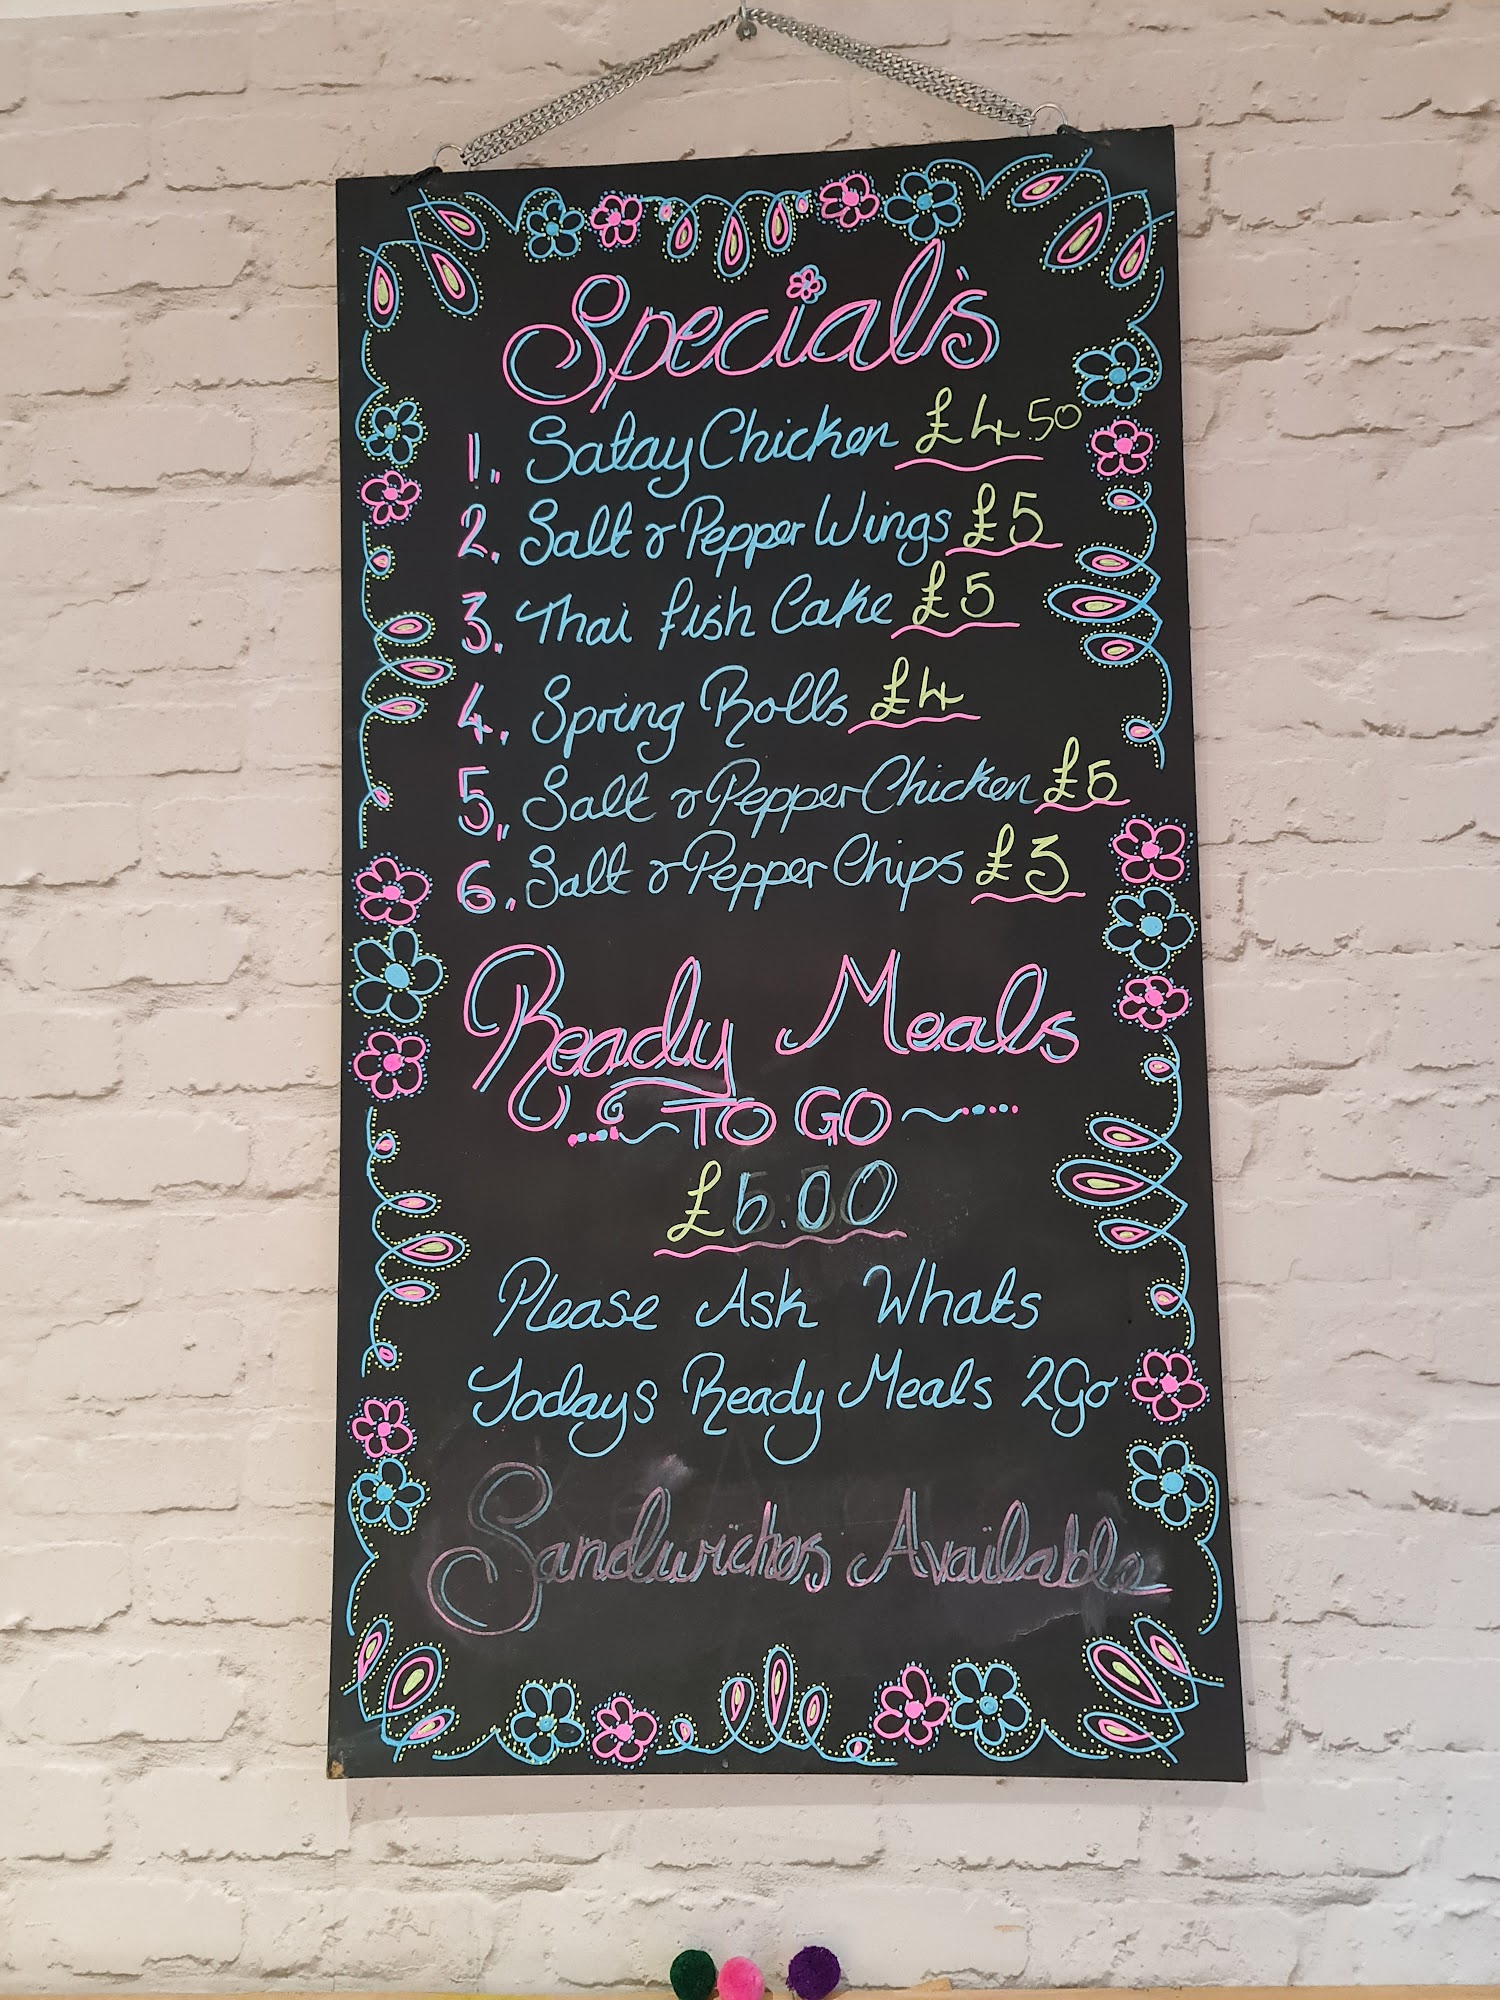 Special's
1. Satay Chicken £4.50
2. Salt & Pepper Wings £5
3. Thai Fish Cake £5
4. Spring Rolls £4
5. Salt & Pepper Chicken £5
6. Salt & Pepper Chips £3
Ready Meals
TO GO
£6.00
Please Ask Whats
Todays Ready Meals 2Go
Sandwiches Available